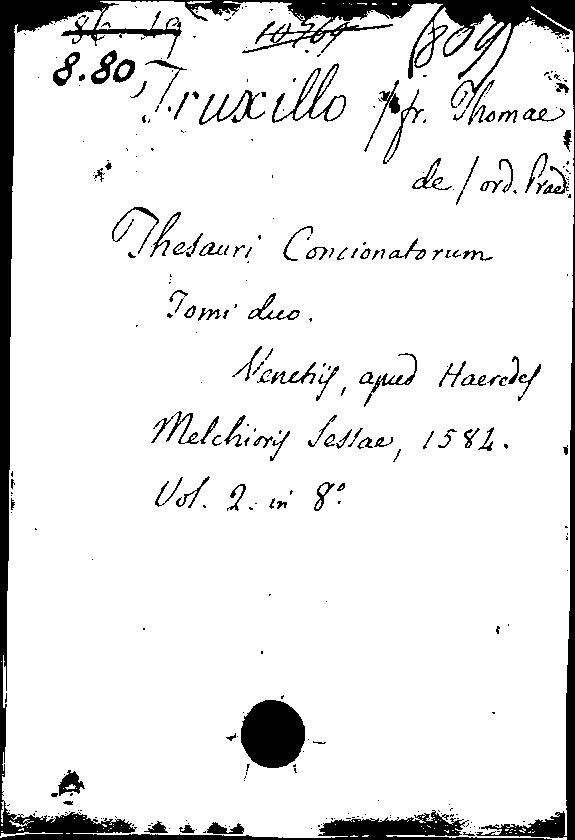 86.19 10769 (809)
8.80,
Truxillo / fr. Thomae
de / ord. Praed.
Thesauri Concionatorum
Tomi duo.
Venetiis, apud Haeredes
Melchioris Sessae, 1584.
Vol. 2. in 8°.